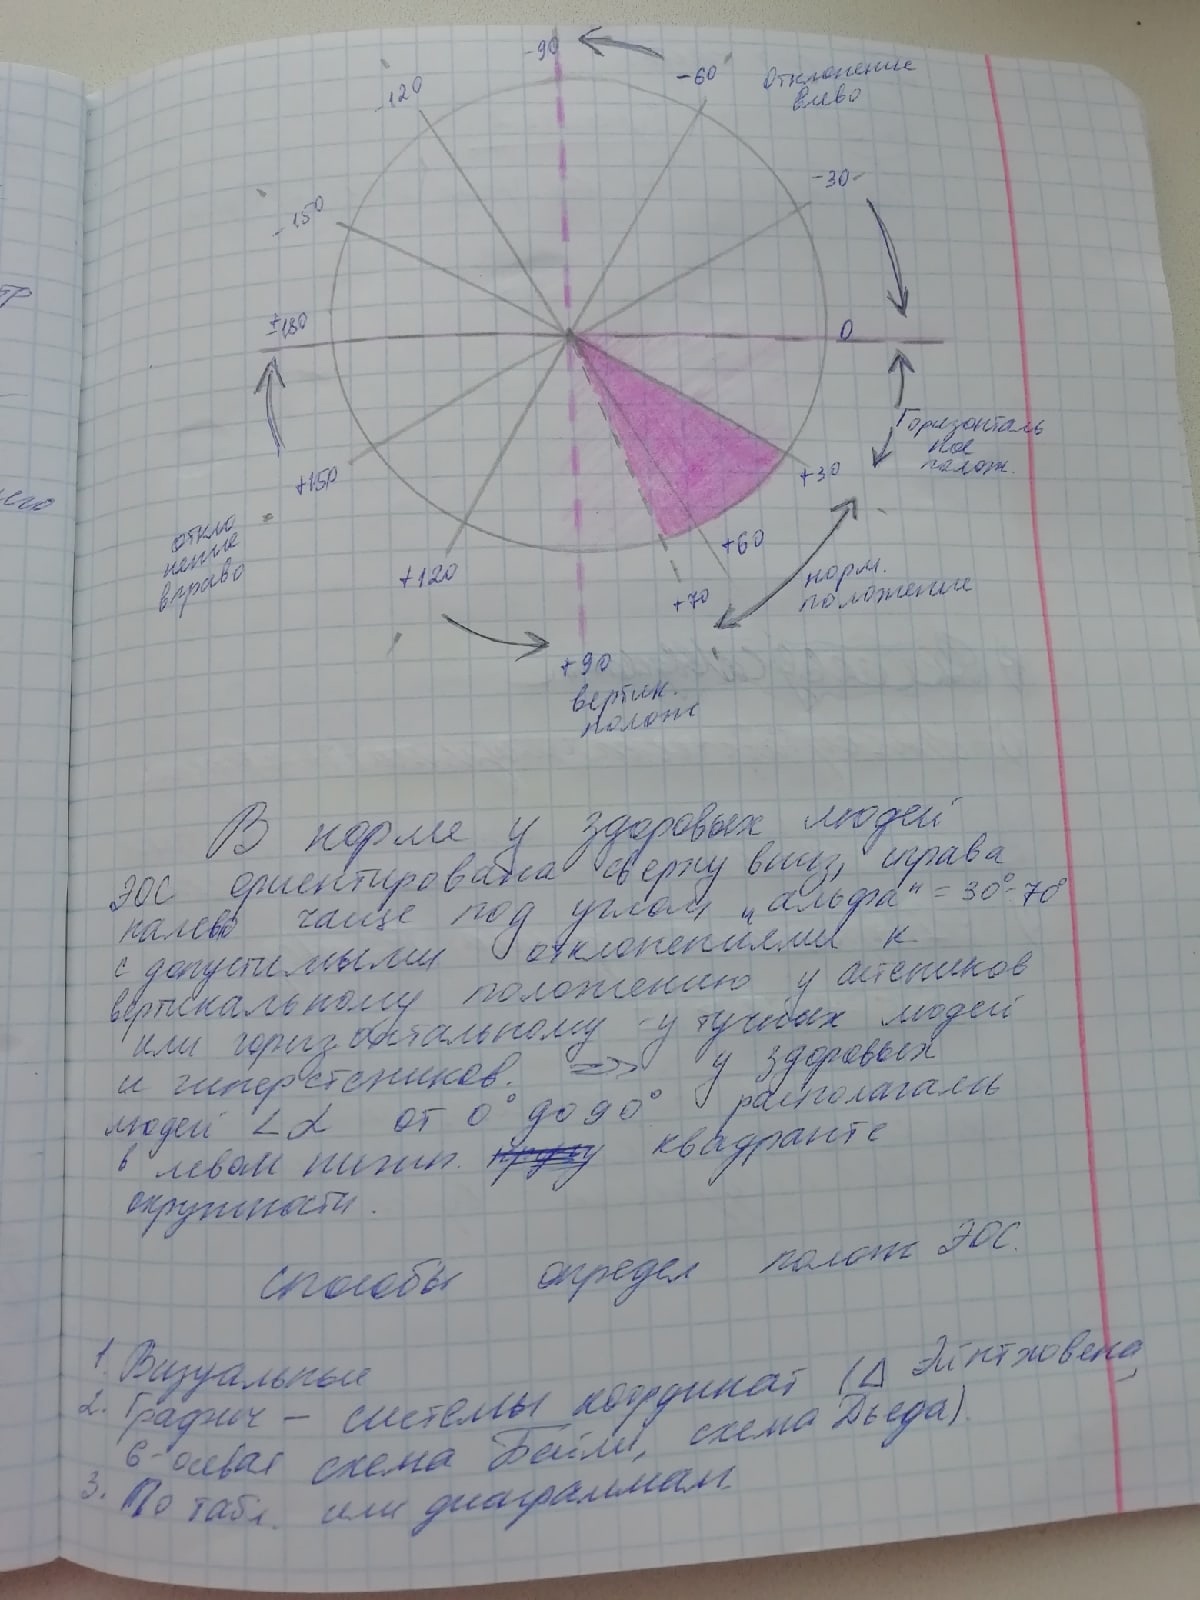 -90
-60
Отклонение
влево
-120
-30-
-150
±180
0
Горизонталь
ное
полож.
+30
+150
+60
откло
нение
вправо
+120
+70
норм.
положение
+90
вертик.
полож
В норме у здоровых людей
ЭОС ориентирована сверху вниз, справа
налево чаще под углом „альфа" = 30°-70°
с допустимыми отклонениями к
вертикальному положению у астеников
или горизонтальному - у тучных людей
и гиперстеников. => у здоровых
людей ∠α от 0° до 90° располагаясь
в левом нижн. квадранте
окружности.
Способы определ полож ЭОС.
1. Визуальные
2. Графич - системы координат (Δ Эйнтховена,
6-осевая схема Бейли, схема Дьеда).
3. По табл. или диаграммам.